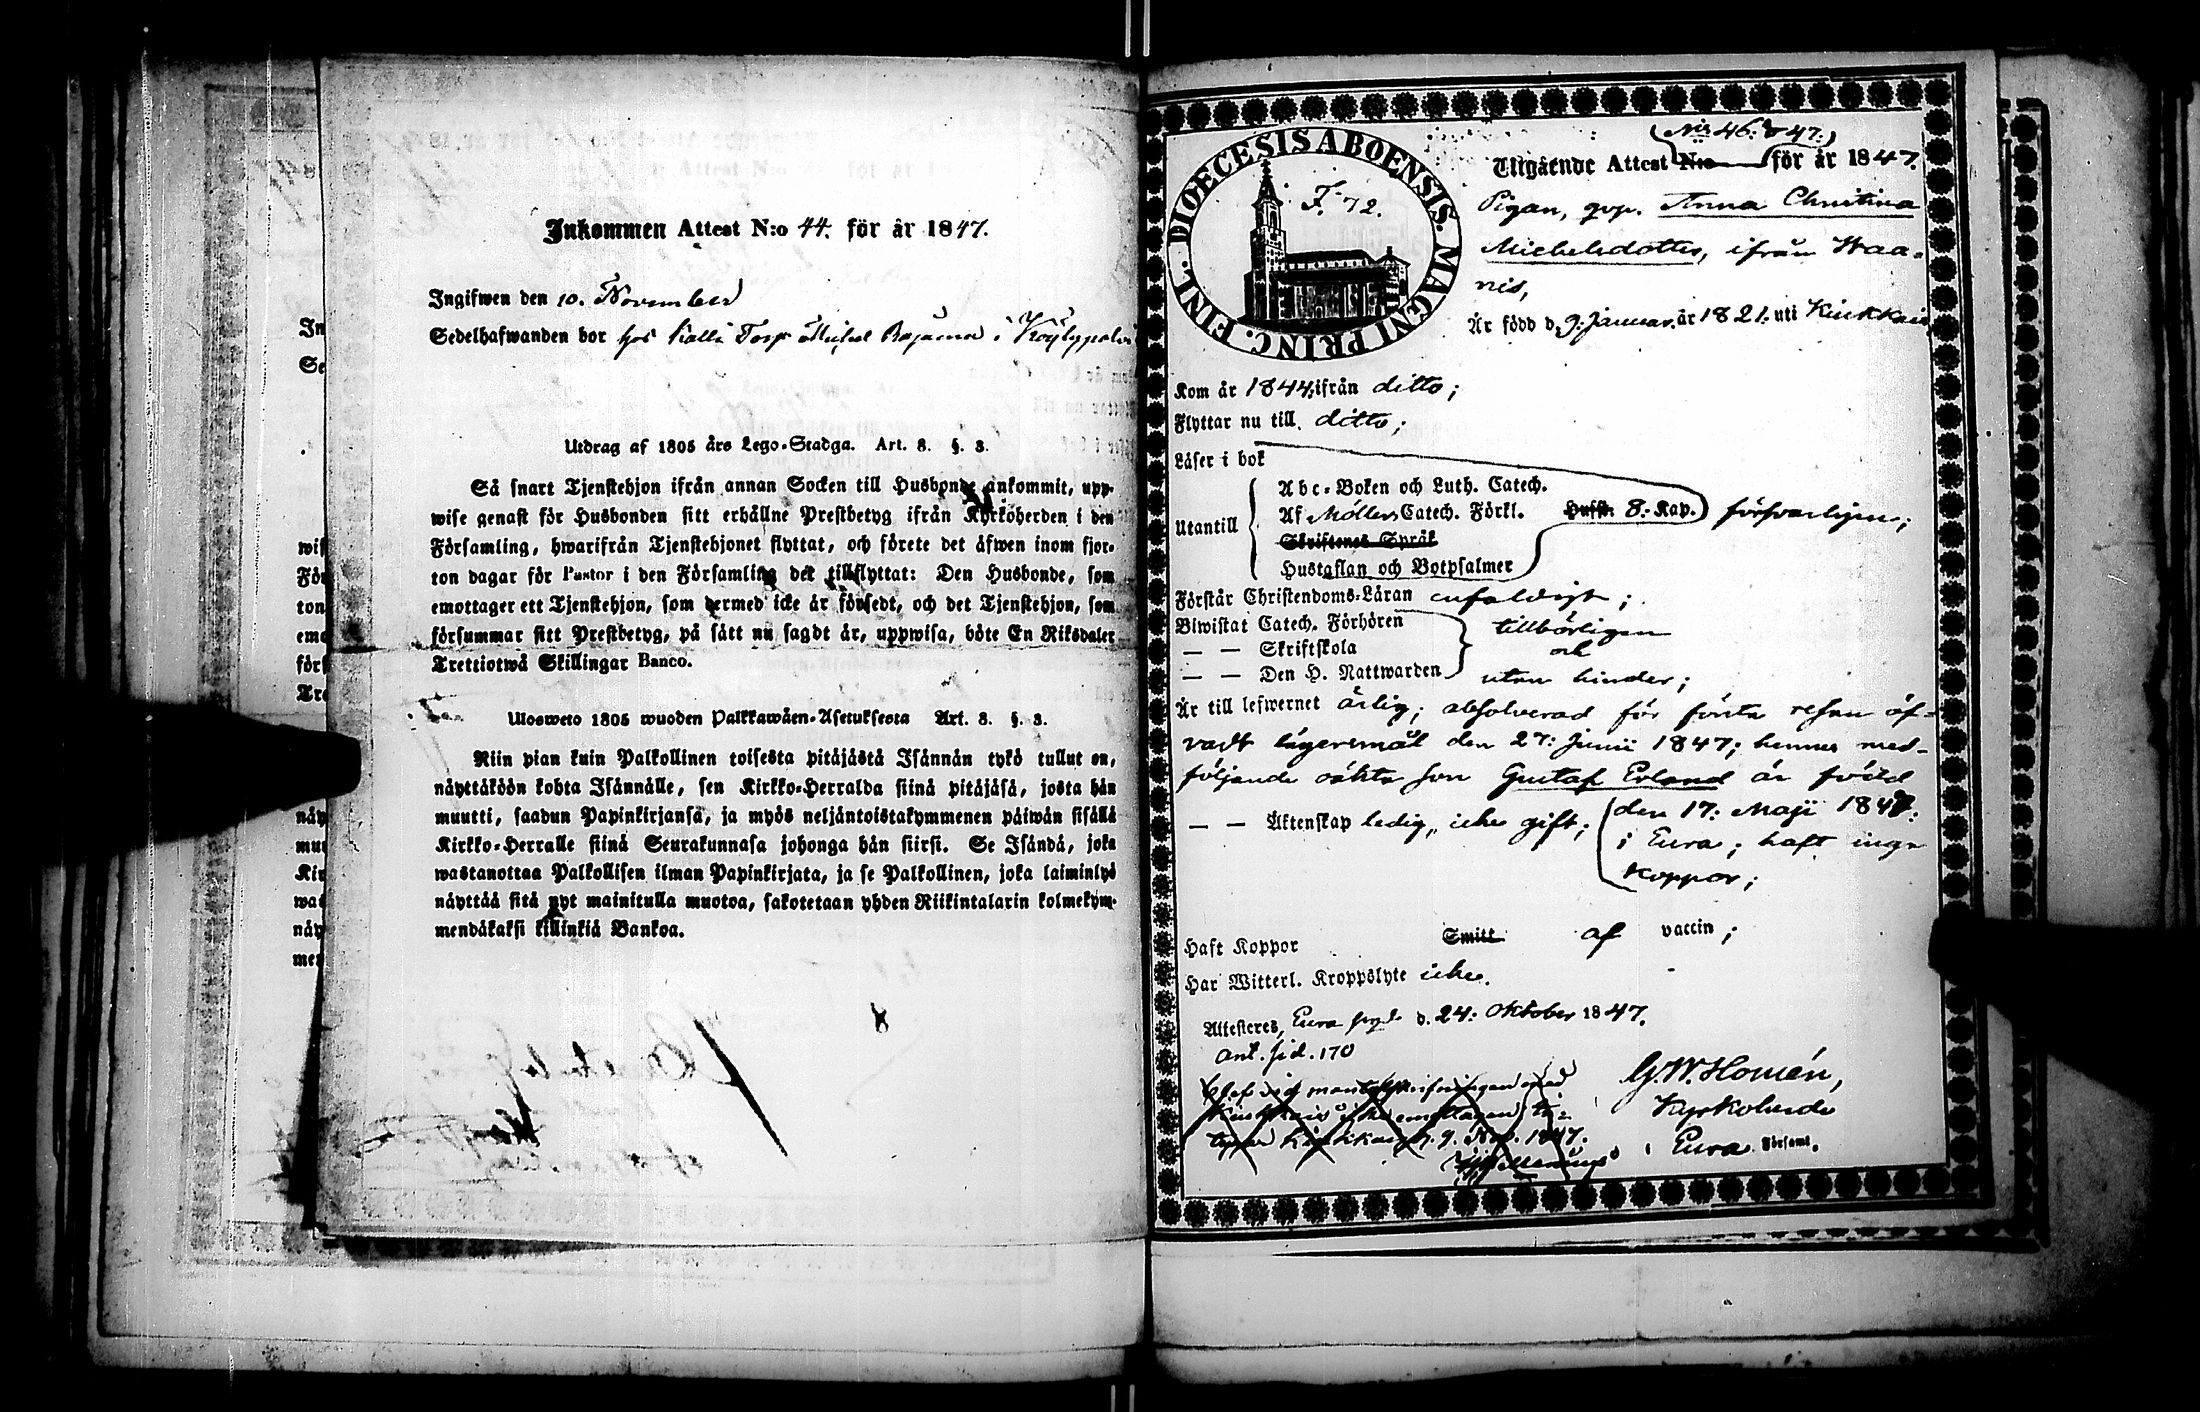 Inkommen Attest N:o 44. för år 1847.
Ingifwen den 10. November
Sedelhafwanden bor hos Kalli Torp Michel Bajama i Köylypolvi
Utdrag af 1805 års Lego-Stadga. Art. 8. §. 3.
Så snart Tjenstehjon ifrån annan Socken till Husbonde ankommit, upp-
wise genast för Husbonden sitt erhållne Prestbetyg ifrån Kyrkoherden i den
Församling, hwarifrån Tjenstehjonet flyttat, och förete det äfwen inom fjor-
ton dagar för Pastor i den Församling det tillflyttat: Den Husbonde, som
emottager ett Tjenstehjon, som dermed icke är försedt, och det Tjenstehjon, som
försummar sitt Prestbetyg, på sätt nu sagdt är, uppwisa, böte En Riksdaler
Trettiotwå Skillingar Banco.
Ulosweto 1805 wuoden Palkkawäen-Asetuksesta Art. 8. §. 3.
Niin pian kuin Palkollinen toisesta pitäjästä Isännän tykö tullut on,
näyttäköön kohta Isännälle, sen Kirkko-Herralda siinä pitäjäsä, josta hän
muutti, saadun Papinkirjansa, ja myös neljäntoistakymmenen päiwän sisällä
Kirkko-Herralle siinä Seurakunnasa johonga hän siirsi. Se Isändä, joka
wastanottaa Palkollisen ilman Papinkirjata, ja se Palkollinen, joka laiminlyö
näyttää sitä nyt mainitulla muotoa, sakotetaan yhden Riikintalarin kolmekym-
mendäkaksi killinkiä Bankoa.
DIOECESIS ABOENSIS. MAGNI PRINC. FINL.
F. 72.
(N:is 46. & 47.)
Utgående Attest N:o för år 1847.
Pigan, qvp. Anna Christina
Michelsdotter, ifrån Waa-
nis,
Är född d. 9. Januar. år 1821. uti Kiukkais
Kom år 1844. ifrån ditto;
Flyttar nu till ditto;
Läser i bok
Utantill
Abc-Boken och Luth. Catech.
Af Möllers Catech. Förkl. Hufst. 8. Kap. försvarligen;
Skriftenes Språk
Hustaflan och Botpsalmer
Förstår Christendoms-Läran enfaldigt;
Biwistat Catech. Förhören tillbörligen
— — Skriftskola och
— — Den H. Nattwarden utan hinder;
Är till lefwernet ärlig; absolverad för första resan öf-
vadt lägersmål den 27: Junii 1847; hennes med-
följande oäkta son Gustaf Erland är född
— — Äktenskap ledig, icke gift; den 17: Maji 1847.
i Eura; haft inga
koppor;
Haft Koppor Smitt af vaccin;
Har Witterl. Kroppslyte icke.
Attesteres, Eura prgd d. 24: Oktober 1847.
Ant. sid. 170
G. W. Homén,
Kyrkoherde
i Eura Församl.
Blef vid mantalsskrifningen med
Kiukkais icke emottagen
Kiukkais d. 9. Nov. 1847.